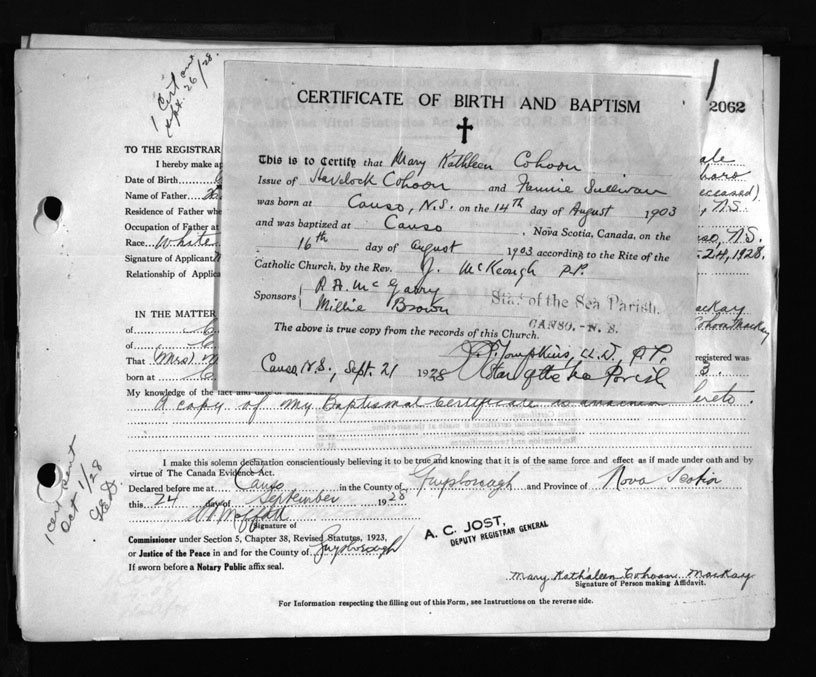 1 Cert out
Sept. 26/28.
2062
CERTIFICATE OF BIRTH AND BAPTISM
This is to Certify that Mary Kathleen Cohoon
Issue of Havelock Cohoon and Fannie Sullivan
was born at Canso, N.S. on the 14th day of August 1903
and was baptized at Canso, Nova Scotia, Canada, on the
16th day of August 1903 according to the Rite of the
Catholic Church, by the Rev. J. McKeough P.P.
Sponsors R. A. McGarry
Millie Brown
Star of the Sea Parish.
CANSO, - N. S.
The above is true copy from the records of this Church.
Canso N.S., Sept. 21 1928 J. J. Tompkins, LL.D., P.P.
Star of the Sea Parish
TO THE REGISTRAR
I hereby make ap
Date of Birth
Name of Father
(deceased)
Residence of Father whe
N.S.
Occupation of Father at
N.S.
Race White
Signature of Applicant
24, 1928.
Relationship of Applica
IN THE MATTER
MacKay
of
Cohoon MacKay
of
That Mrs) M
registered was
born at C
3.
My knowledge of the fact and
A copy of my Baptismal Certificate is hereto.
I make this solemn declaration conscientiously believing it to be true and knowing that it is of the same force and effect as if made under oath and by
virtue of The Canada Evidence Act.
Declared before me at Canso in the County of Guysborough and Province of Nova Scotia
this 24 day of September 1928
Signature of
Commissioner under Section 5, Chapter 38, Revised Statutes, 1923,
or Justice of the Peace in and for the County of Guysborough
If sworn before a Notary Public affix seal.
A. C. JOST,
DEPUTY REGISTRAR GENERAL
Mary Kathaleen Cohoon MacKay
Signature of Person making Affidavit.
For Information respecting the filling out of this Form, see Instructions on the reverse side.
1 cert sent
Oct 1/28